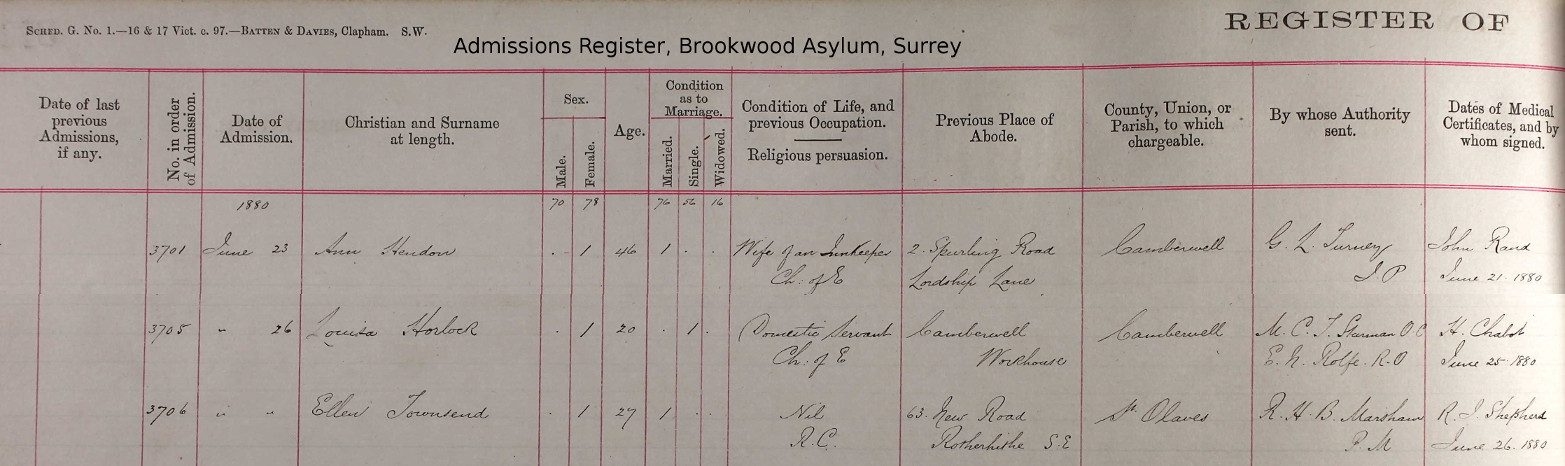 SCHED. G. No. 1.—16 & 17 Vict. c. 97.—BATTEN & DAVIES, Clapham. S.W.
REGISTER OF
Admissions Register, Brookwood Asylum, Surrey
Date of last
previous
Admissions,
if any.
No. in order
of Admission.
Date of
Admission.
Christian and Surname
at length.
Sex.
Male.
Female.
Age.
Condition
as to
Marriage.
Married.
Single.
Widowed.
Condition of Life, and
previous Occupation.
Religious persuasion.
Previous Place of
Abode.
County, Union, or
Parish, to which
chargeable.
By whose Authority
sent.
Dates of Medical
Certificates, and by
whom signed.
1880 70 78 76 56 16
3701 June 23 Ann Hendon . 1 46 1 . . Wife of an Innkeeper 2. Spurling Road Camberwell G. L. Turney John Rand
Ch: of E Lordship Lane J. P June 21. 1880
3705 " 26 Louisa Horlock . 1 20 . 1 . Domestic Servant Camberwell Camberwell M. C. T. Sturman O.C H. Chabot
Ch: of E Workhouse E. N. Rolfe. R.O June 25. 1880
3706 " " Ellen Townsend . 1 27 1 . . Nil 63. New Road St. Olaves R. H. B. Marsham R. J. Shepherd
R.C. Rotherhithe S.E P. M June 26. 1880